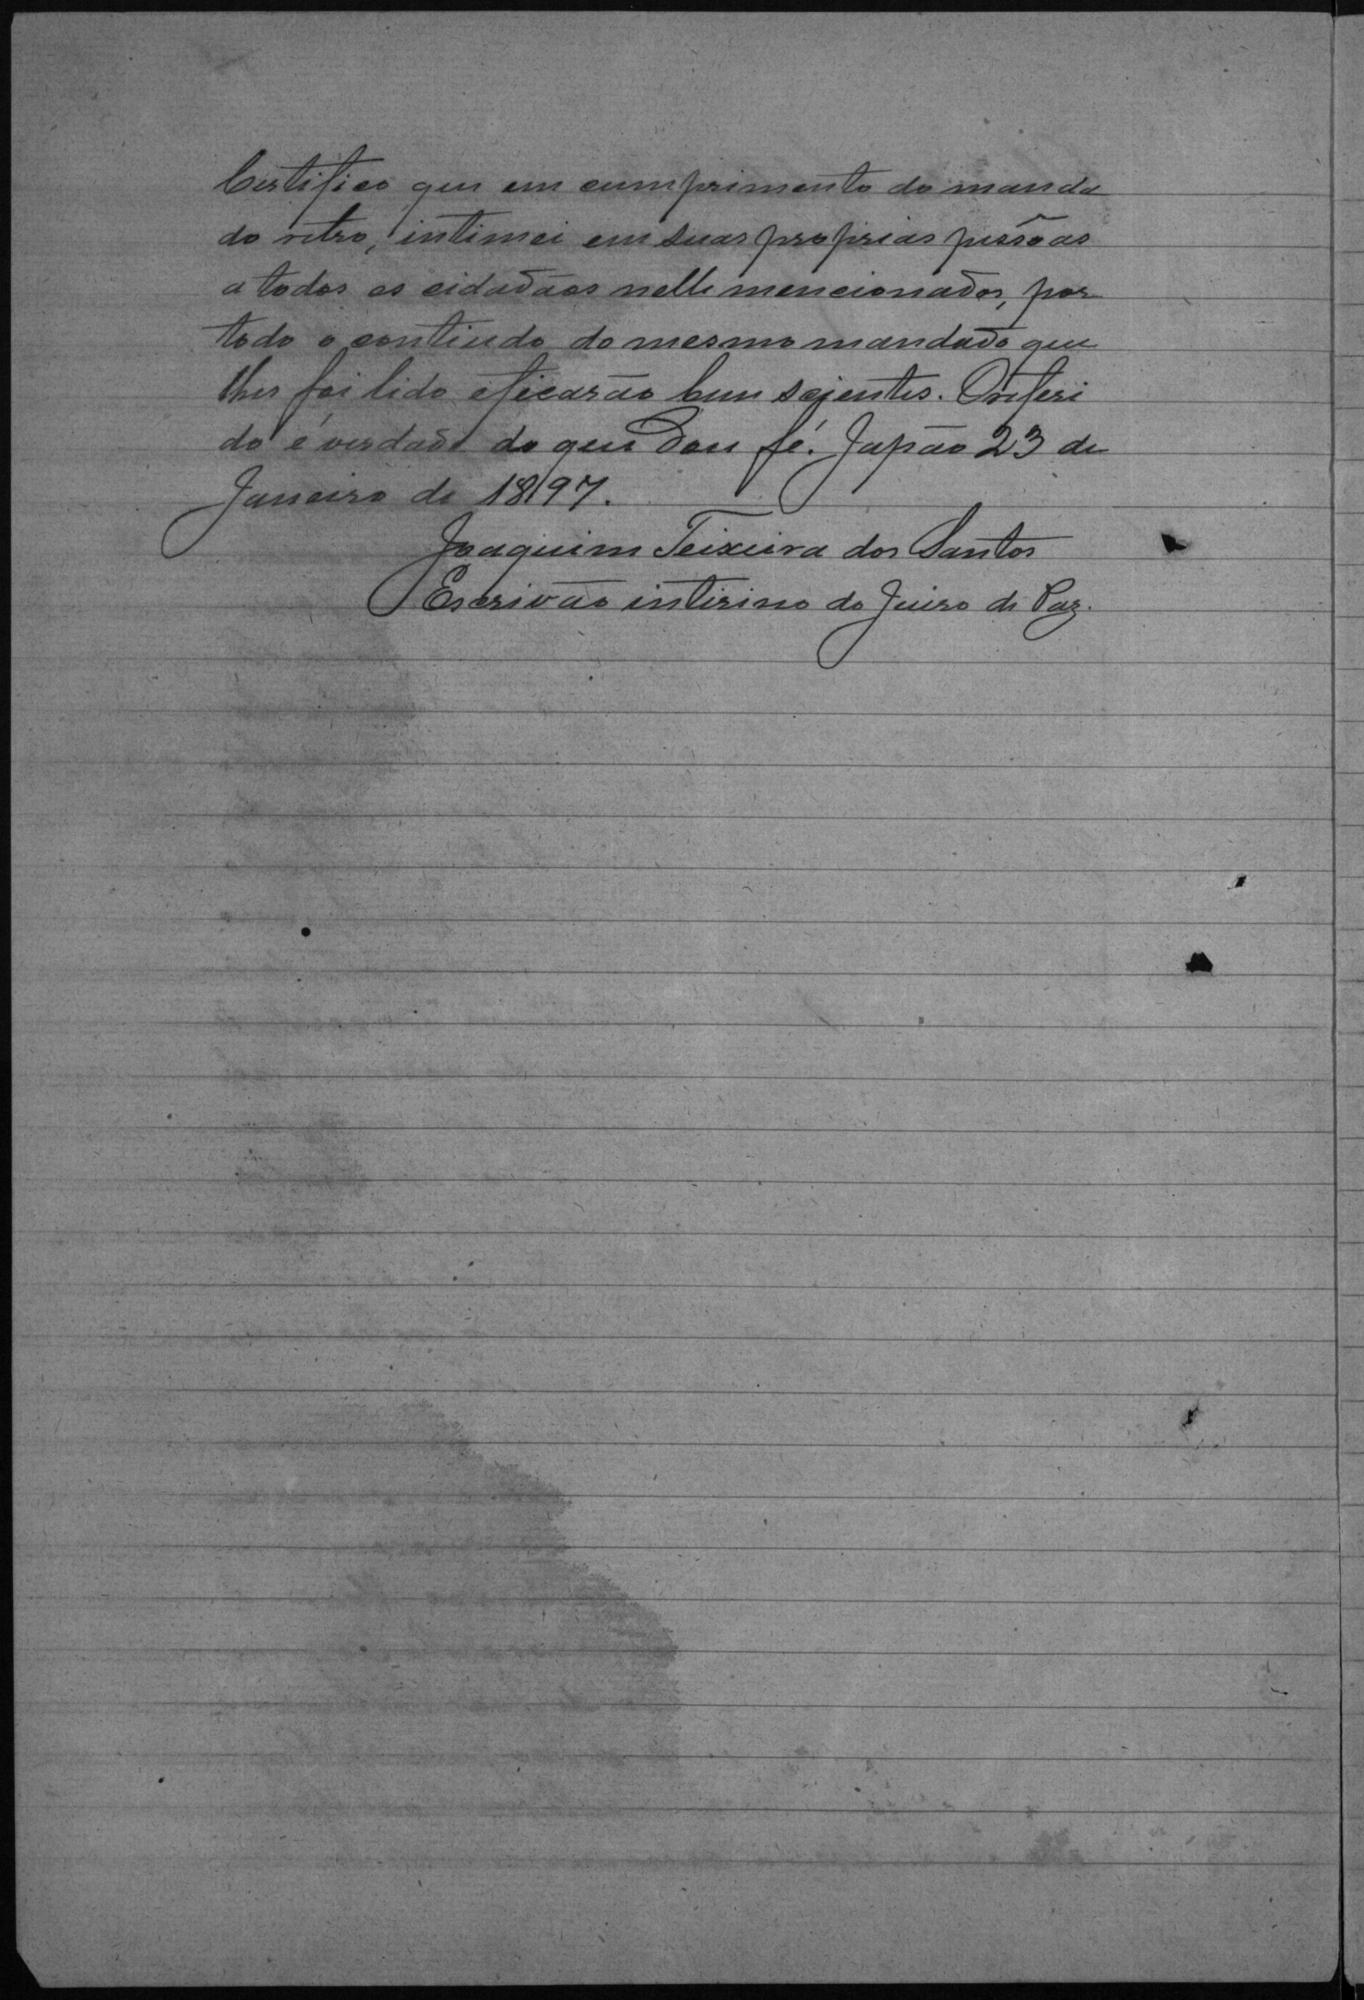 Certifico que em cumprimento do manda
do retro, intimei em suas proprias pessôas
a todos os cidadãos nelle mencionados, por
todo o contiudo do mesmo mandado que
lhes foi lido e ficarão bem scientes. O referi
do é verdade do que dou fé. Japão 23 de
Janeiro de 1897.
Joaquim Teixeira dos Santos
Escrivão intirino do Juiso de Paz.